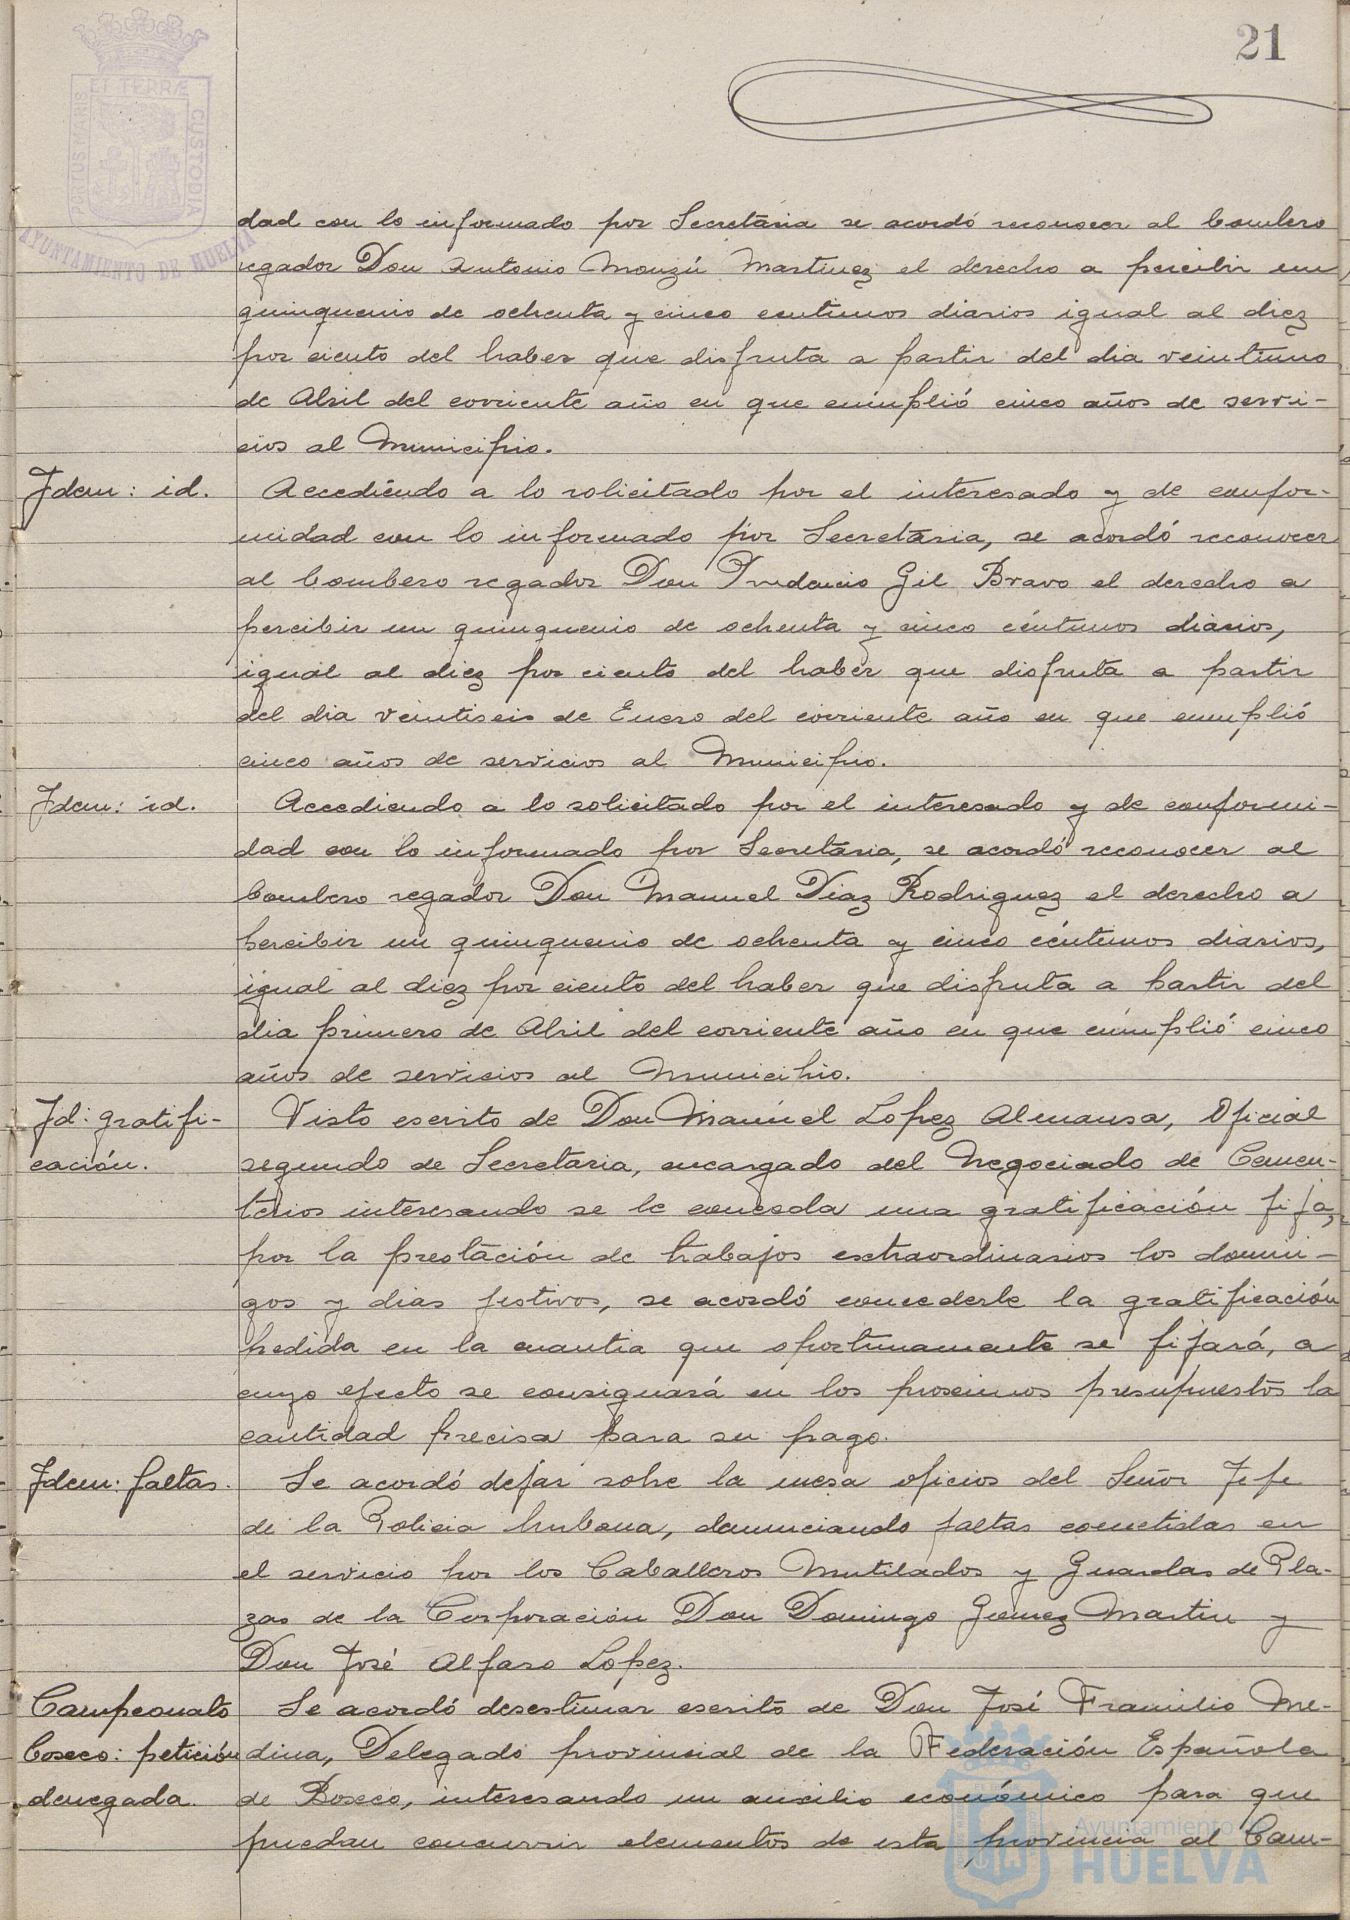 21
ET TERRÆ
PORTUS MARIS
CUSTODIA
AYUNTAMIENTO DE HUELVA
dad con lo informado por Secretaria se acordó reconocer al bombero
regador Don Antonio Monzú Martinez el derecho a percibir un
quinquenio de ochenta y cinco centimos diarios igual al diez
por ciento del haber que disfruta a partir del dia veintiuno
de Abril del corriente año en que cumplió cinco años de servi-
cios al Municipio.
Idem: id. Accediendo a lo solicitado por el interesado y de confor-
midad con lo informado por Secretaria, se acordó reconocer
al bombero regador Don Prudencio Gil Bravo el derecho a
percibir un quinquenio de ochenta y cinco céntimos diarios,
igual al diez por ciento del haber que disfruta a partir
del dia veintiseis de Enero del corriente año en que cumplió
cinco años de servicios al Municipio.
Idem: id. Accediendo a lo solicitado por el interesado y de conformi-
dad con lo informado por Secretaria, se acordó reconocer al
bombero regador Don Manuel Diaz Rodriguez el derecho a
percibir un quinquenio de ochenta y cinco céntimos diarios,
igual al diez por ciento del haber que disfruta a partir del
dia primero de Abril del corriente año en que cumplió cinco
años de servicios al Municipio.
Id: gratifi- Visto escrito de Don Manuel Lopez Almansa, Oficial
cación. segundo de Secretaria, encargado del Negociado de Cemen-
terios interesando se le conceda una gratificación fija,
por la prestación de trabajos extraordinarios los domin-
gos y dias festivos, se acordó concederle la gratificación
pedida en la cuantia que oportunamente se fijará, a
cuyo efecto se consignará en los proximos presupuestos la
cantidad precisa para su pago.
Idem: faltas. Se acordó dejar sobre la mesa oficios del Señor Jefe
de la Policia Hurbana, denunciando faltas cometidas en
el servicio por los Caballeros Mutilados y Guardas de Pla-
zas de la Corporación Don Domingo Gomez Martin y
Don José Alfaro Lopez.
Campeonato Se acordó desestimar escrito de Don José Framilio Me-
Boxeo: petición dina, Delegado provincial de la Federación Española
denegada. de Boxeo, interesando un auxilio económico para que
puedan concurrir elementos de esta provincia al Cam-
Ayuntamiento de
HUELVA